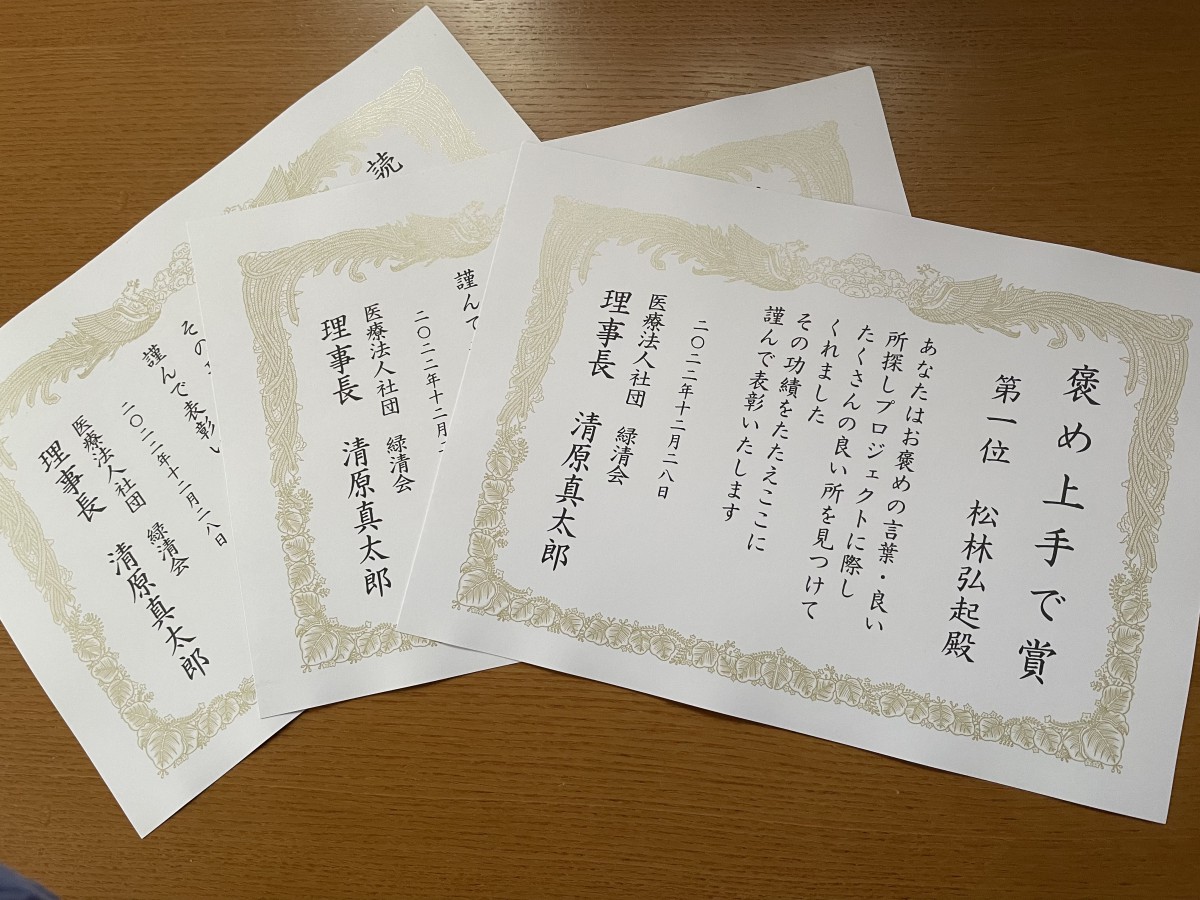 褒め上手で賞
第一位 松林弘起殿
あなたはお褒めの言葉・良い
所探しプロジェクトに際し
たくさんの良い所を見つけて
くれました
その功績をたたえここに
謹んで表彰いたします
二〇二二年十二月二八日
医療法人社団 緑清会
理事長 清原真太郎
謹んで
二〇二二年十二月
医療法人社団 緑清会
理事長 清原真太郎
読
その
謹んで表彰い
二〇二二年十二月二八日
医療法人社団 緑清会
理事長 清原真太郎